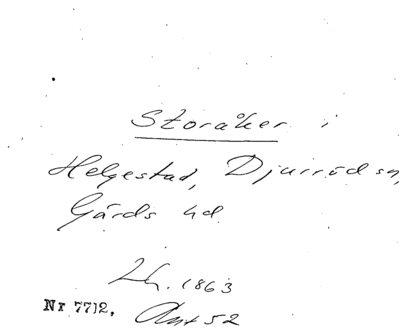 Storåker i
Helgestad, Djurröd sn,
Gärds hd
Lh. 1863
Nr 7712, Akt 52